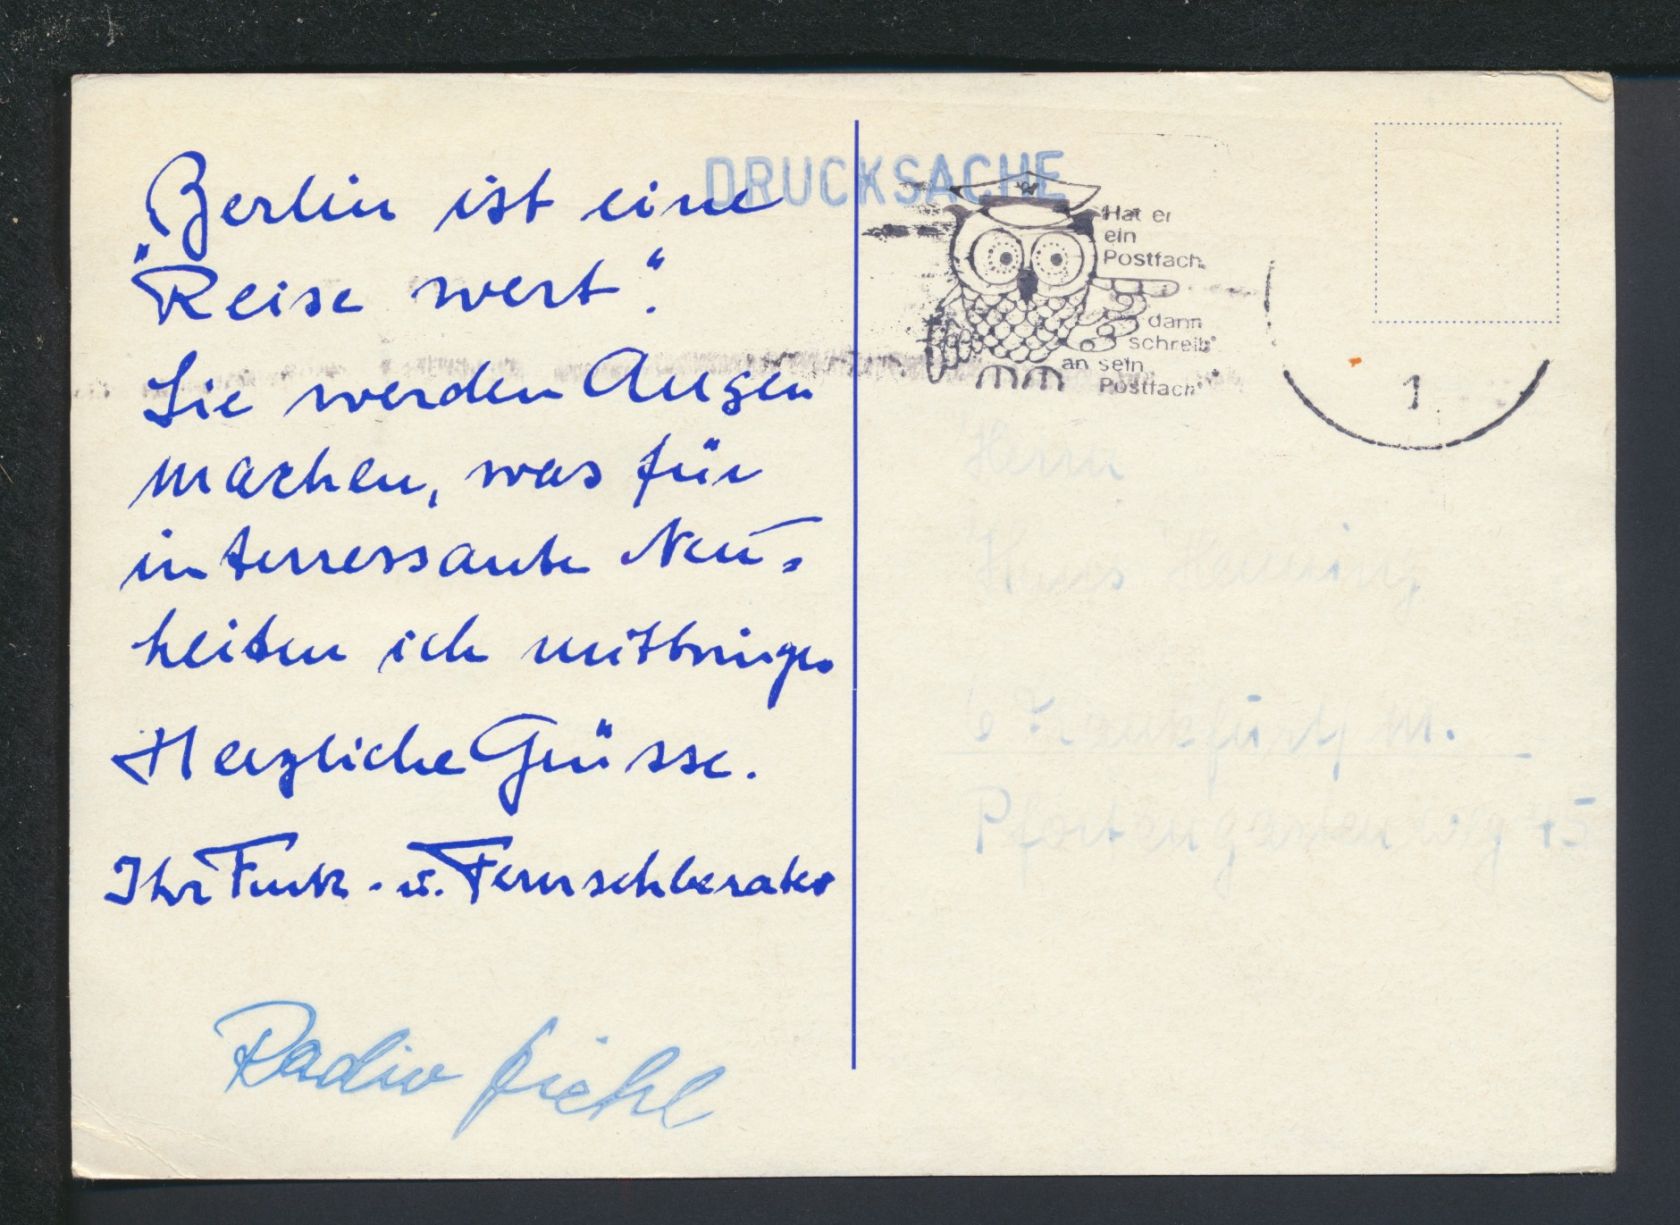 „Berlin ist eine
Reise wert“.
Sie werden Augen
machen, was für
interressante Neu-
heiten ich mitbringe.
Herzliche Grüsse.
Ihr Funk- u. Fernsehberater
Radio
DRUCKSACHE
Hat er
ein
Postfach
dann
schreib
an sein
Postfach
1
Herrn
Hans Henning
6 Frankfurt/M.
Pfortengartenweg 45